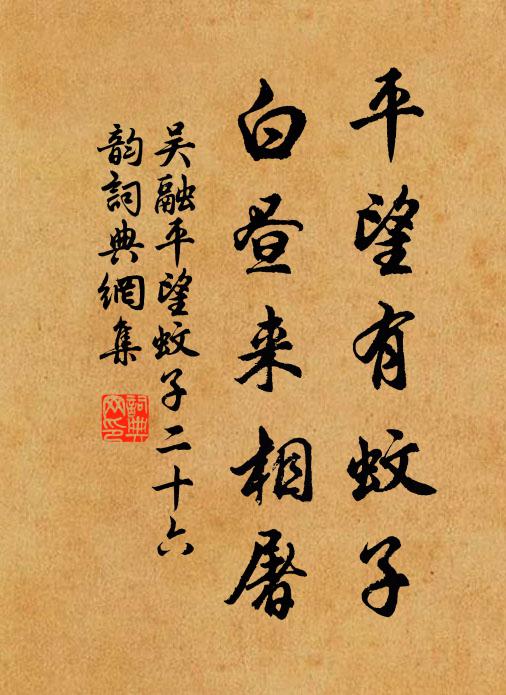 平望有蚊子
白昼来相屠
吴融平望蚊子二十六
韵词典網集
詞典
网印